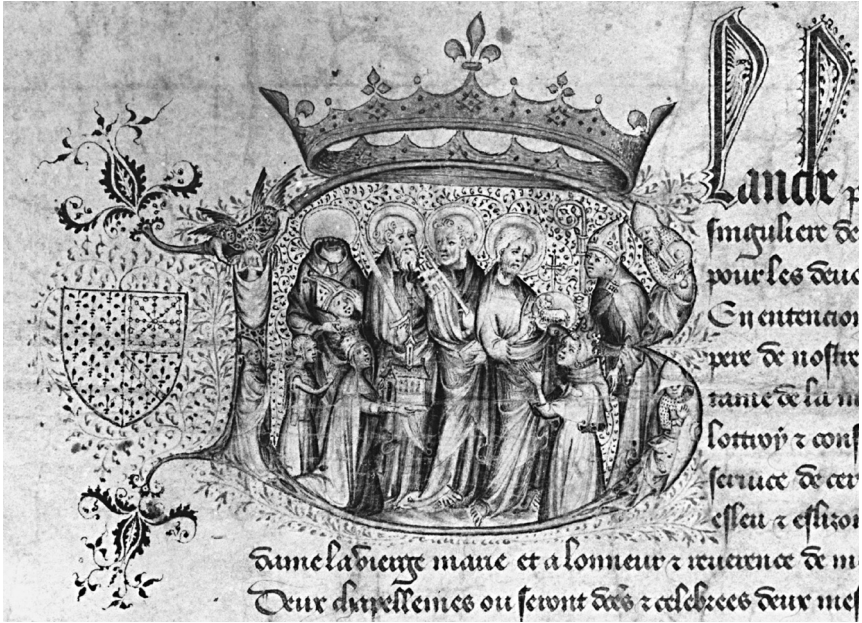 Lanche p
singuliere de
pour les deuc
En entencion
pere de nostre
rame de la m
lottroy & conf
seruice de cer
esleu & eslizon
dame la vierge marie et a lonneur & reuerence de m
Deux chapellenies ou seront dces & celebrees deux mes